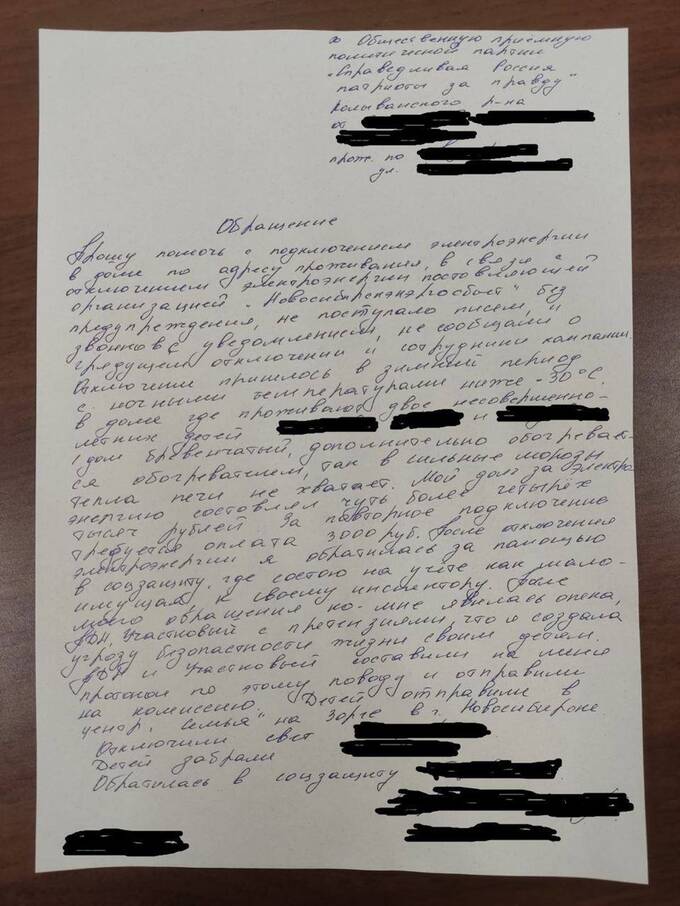 в Общественную приёмную
политической партии
„Справедливая Россия
патриоты за правду"
Колыванского р-на
от
прож. по
ул.
Обращение
Прошу помочь с подключением электроэнергии
в доме по адресу проживания, в связи с
отключением электроэнергии поставляющей
организацией „Новосибирскэнэргосбыт" без
предупреждения, не поступало писем, и
звонков с уведомлением, не сообщали о
грядущем отключении и сотрудники кампании.
Отключение пришлось в зимний период
с ночными температурами ниже -30°С.
в доме где проживают двое несовершенно-
летних детей и
(дом бревенчатый, дополнительно обогревает-
ся обогревателем, так в сильные морозы
тепла печи не хватает. Мой долг за электро
энергию составлял чуть более четырёх
тысяч рублей. За повторное подключение
требуется оплата 3000 руб. После отключения
электроэнергии я обратилась за помощью
в соцзащиту, где состою на учёте как мало-
имущая к своему инспектору. После
моего обращения ко-мне явилась опека,
ПДН, Участковый с претензиями, что я создала
угрозу безопасности жизни своим детям.
ПДН и Участковый составили на меня
протокол по этому поводу и отправили
на комиссию. Детей отправили в
центр „Семья" на Зорге в г. Новосибирске
Отключили свет
Детей забрали
Обратилась в соцзащиту